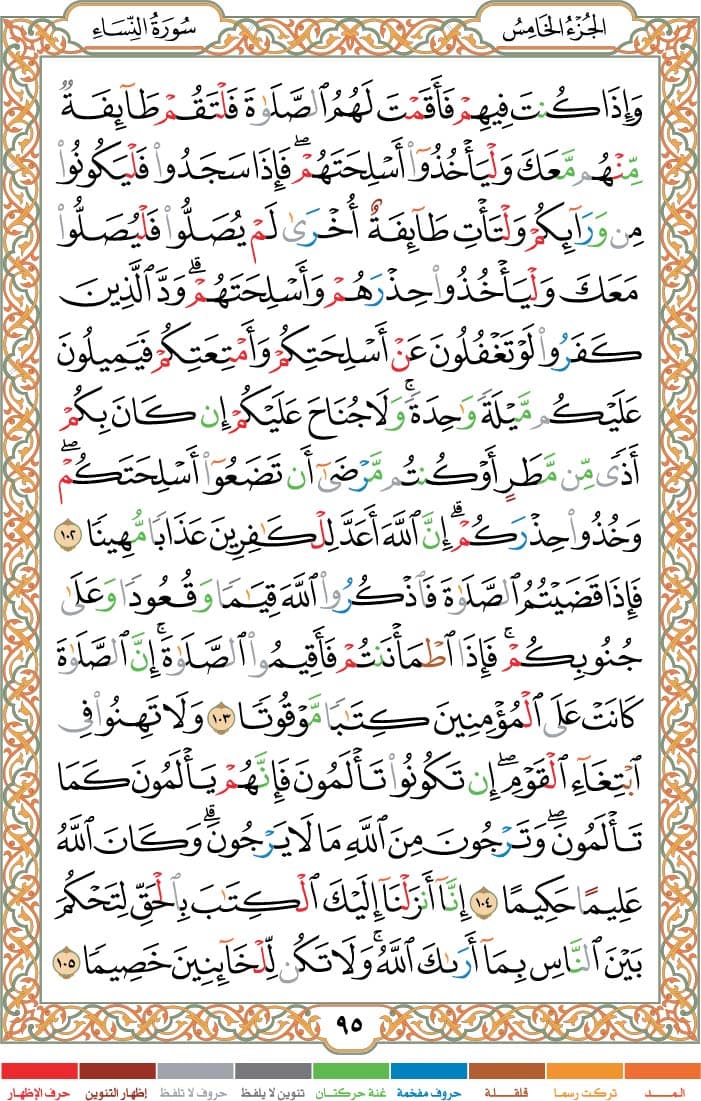 الجُزْءُ الخَامِسُ
سُورَةُ النِّسَاءِ
وَإِذَا كُنتَ فِيهِمْ فَأَقَمْتَ لَهُمُ ٱلصَّلَوٰةَ فَلْتَقُمْ طَآئِفَةٌ
مِّنْهُم مَّعَكَ وَلْيَأْخُذُوٓا۟ أَسْلِحَتَهُمْ ۖ فَإِذَا سَجَدُوا۟ فَلْيَكُونُوا۟
مِن وَرَآئِكُمْ وَلْتَأْتِ طَآئِفَةٌ أُخْرَىٰ لَمْ يُصَلُّوا۟ فَلْيُصَلُّوا۟
مَعَكَ وَلْيَأْخُذُوا۟ حِذْرَهُمْ وَأَسْلِحَتَهُمْ ۗ وَدَّ ٱلَّذِينَ
كَفَرُوا۟ لَوْ تَغْفُلُونَ عَنْ أَسْلِحَتِكُمْ وَأَمْتِعَتِكُمْ فَيَمِيلُونَ
عَلَيْكُم مَّيْلَةً وَٰحِدَةً ۚ وَلَا جُنَاحَ عَلَيْكُمْ إِن كَانَ بِكُمْ
أَذًى مِّن مَّطَرٍ أَوْ كُنتُم مَّرْضَىٰٓ أَن تَضَعُوٓا۟ أَسْلِحَتَكُمْ ۖ
وَخُذُوا۟ حِذْرَكُمْ ۗ إِنَّ ٱللَّهَ أَعَدَّ لِلْكَٰفِرِينَ عَذَابًا مُّهِينًا ١٠٢
فَإِذَا قَضَيْتُمُ ٱلصَّلَوٰةَ فَٱذْكُرُوا۟ ٱللَّهَ قِيَٰمًا وَقُعُودًا وَعَلَىٰ
جُنُوبِكُمْ ۚ فَإِذَا ٱطْمَأْنَنتُمْ فَأَقِيمُوا۟ ٱلصَّلَوٰةَ ۚ إِنَّ ٱلصَّلَوٰةَ
كَانَتْ عَلَى ٱلْمُؤْمِنِينَ كِتَٰبًا مَّوْقُوتًا ١٠٣ وَلَا تَهِنُوا۟ فِى
ٱبْتِغَآءِ ٱلْقَوْمِ ۖ إِن تَكُونُوا۟ تَأْلَمُونَ فَإِنَّهُمْ يَأْلَمُونَ كَمَا
تَأْلَمُونَ ۖ وَتَرْجُونَ مِنَ ٱللَّهِ مَا لَا يَرْجُونَ ۗ وَكَانَ ٱللَّهُ
عَلِيمًا حَكِيمًا ١٠٤ إِنَّآ أَنزَلْنَآ إِلَيْكَ ٱلْكِتَٰبَ بِٱلْحَقِّ لِتَحْكُمَ
بَيْنَ ٱلنَّاسِ بِمَآ أَرَىٰكَ ٱللَّهُ ۚ وَلَا تَكُن لِّلْخَآئِنِينَ خَصِيمًا ١٠٥
٩٥
المــــد تركت رسما قلقـــلة حروف مفخمة غنة حركتـان تنوين لا يلفظ حروف لا تلفظ إظهار التنوين حرف الإظهار